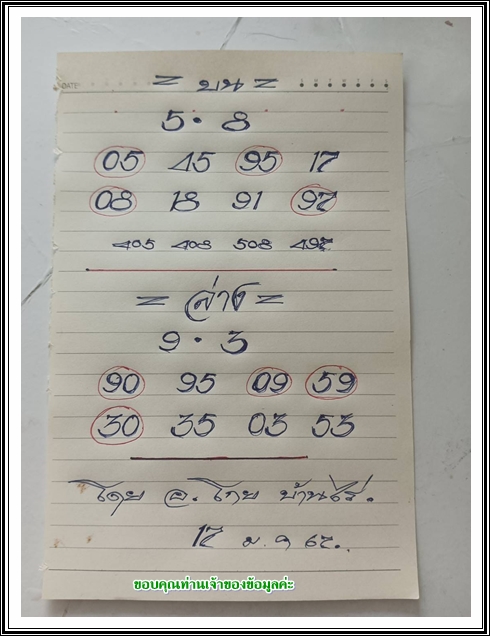 DATE:
= บน =
5 · 8
05 45 95 17
08 18 91 97
405 408 508 497
= ล่าง =
9 · 3
90 95 09 59
30 35 03 53
โดย อ. โกย บ้านไร่.
17 ม. ค 67..
ขอบคุณท่านเจ้าของข้อมูลค่ะ